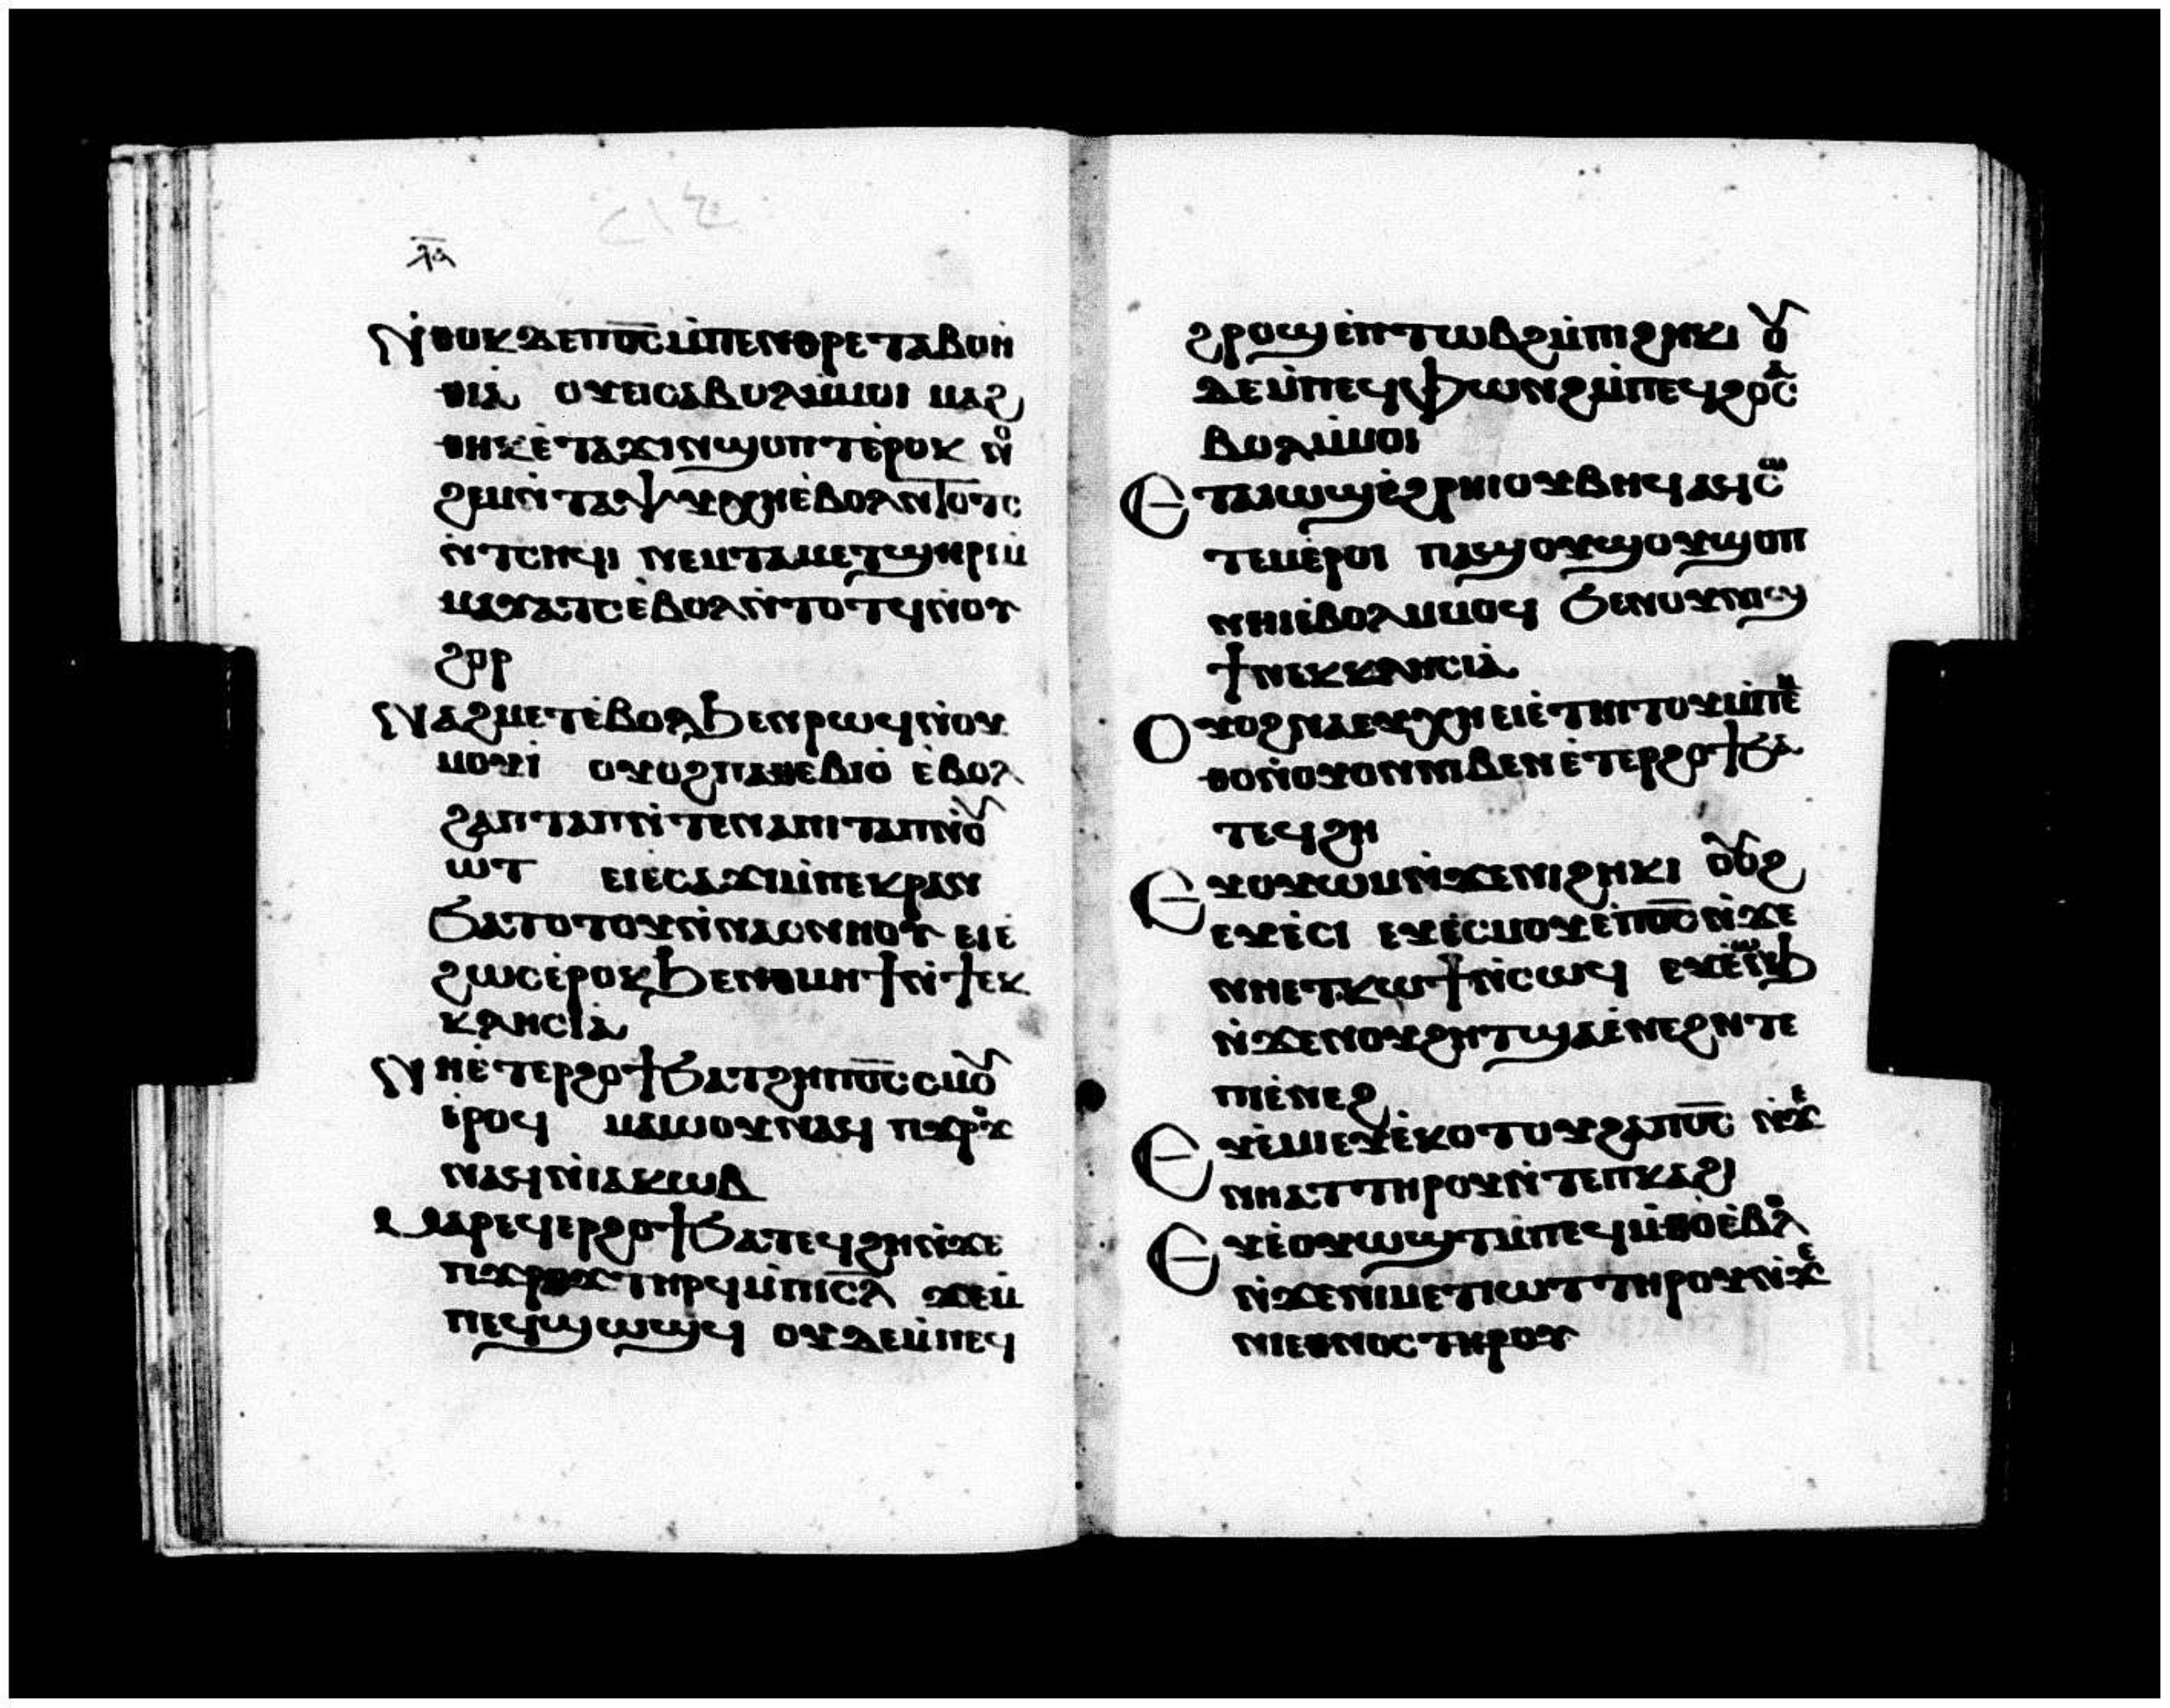 ⲗⲁ
Ⲛⲑⲟⲕ ⲇⲉ ⲡⲟ̅ⲥ̅ ⲙ̇ⲡⲉⲛⲑⲣⲉ ⲧⲁⲃⲟⲏ
ⲑⲓⲁ̇ ⲟⲩⲉⲓ ⲥⲁⲃⲟⲗ ⲙ̇ⲙⲟⲓ ⲙⲁϩ
ⲑⲏⲕ ⲉ̇ⲧⲁϫⲓⲛϣⲟⲡⲧ ⲉ̇ⲣⲟⲕ ⲛⲟ
ϩⲉⲙ ⲛ̇ⲧⲁⲯⲩⲭⲏ ⲉ̇ⲃⲟⲗ ⲛ̇ⲧⲟⲧⲥ
ⲛ̇ⲧⲥⲏϥⲓ ⲛⲉⲙ ⲧⲁⲙⲉⲧϣⲏⲣⲓ ⲙ̇
ⲙⲁⲩⲁⲧⲥ ⲉ̇ⲃⲟⲗ ⲛ̇ⲧⲟⲧϥ ⲛ̇ⲟⲩ
ϩⲟⲣ
Ⲛⲁϩⲙⲉⲧ ⲉ̇ⲃⲟⲗ ϧⲉⲛ ⲣⲱϥ ⲛ̇ⲟⲩ
ⲙⲟⲩⲓ̇ ⲟⲩⲟϩ ⲡⲁⲑⲉⲃⲓⲟ̇ ⲉ̇ⲃⲟⲗ
ϩⲁⲡⲧⲁⲡ ⲛ̇ⲧⲉ ⲛⲁⲡⲓⲧⲁⲡ ⲛ̇ⲟⲩ
ⲱⲧ ⲉⲓⲉ̇ⲥⲁϫⲓ ⲙ̇ⲡⲉⲕⲣⲁⲛ
ϭⲁⲧⲟⲧⲟⲩ ⲛ̇ⲛⲁⲥⲛⲏⲟⲩ ⲉⲓⲉ̇
ϩⲱⲥ ⲉ̇ⲣⲟⲕ ϧⲉⲛ ⲑⲙⲏϯ ⲛ̇ϯⲉⲕ
ⲕⲗⲏⲥⲓⲁ̇
Ⲛⲏ ⲉ̇ⲧⲉⲣϩⲟϯ ϭⲁⲧϩⲏ ⲡⲟ̅ⲥ̅ ⲥⲙⲟⲩ
ⲉ̇ⲣⲟϥ ⲙⲁⲱⲟⲩ ⲛⲁϥ ⲡϫⲣⲟϫ
ⲛⲁϥ ⲛ̇ⲓⲁⲕⲱⲃ
Ⲙⲁⲣⲉϥⲉⲣϩⲟϯ ϭⲁⲧⲉϥϩⲏ ⲛ̇ϫⲉ
ⲡϫⲣⲟϫ ⲧⲏⲣϥ ⲙ̇ⲡⲓⲥ̅ⲗ̅ ϫⲉ ⲙ̇
ⲡⲉϥϣⲱϣϥ ⲟⲩⲇⲉ ⲙ̇ⲡⲉϥ
ϩⲣⲟϣ ⲉ̇ⲡⲧⲱⲃϩ ⲙ̇ⲡⲓϩⲏⲕⲓ ⲟⲩ
ⲇⲉ ⲙ̇ⲡⲉϥⲫⲱⲛϩ ⲙ̇ⲡⲉϥϩⲟ ⲥⲁ
ⲃⲟⲗ ⲙ̇ⲙⲟⲓ
Ⲉⲧⲁⲓⲱϣ ⲉ̇ϩⲣⲏⲓ ⲟⲩⲃⲏϥ ⲁϥⲥⲱ
ⲧⲉⲙ ⲉ̇ⲣⲟⲓ ⲡⲁϣⲟⲩϣⲟⲩ ϣⲟⲡ
ⲛⲏⲓ ⲉ̇ⲃⲟⲗ ⲙⲙⲟϥ ϭⲉⲛ ⲟⲩⲛⲓϣ
ϯ ⲛⲉⲕⲕⲗⲏⲥⲓⲁ̇
Ⲟⲩⲟϩ ⲛⲁⲉⲩⲭⲏ ⲉⲓⲉ̇ⲧⲏⲓⲧⲟⲩ ⲙ̇ⲡⲉⲙ
ⲑⲟ ⲛ̇ⲟⲩⲟⲛ ⲛⲓⲃⲉⲛ ⲉ̇ⲧⲉⲣϩⲟϯ ϭⲁ
ⲧⲉϥϩⲏ
Ⲉⲩⲟⲩⲱⲙ ⲛ̇ϫⲉ ⲛⲓϩⲏⲕⲓ ⲟⲩⲟϩ
ⲉⲩⲉ̇ⲥⲓ ⲉⲩⲉ̇ⲥⲙⲟⲩ ⲉ̇ⲡⲟ̅ⲥ̅ ⲛ̇ϫⲉ
ⲛⲏⲉⲧⲕⲱϯ ⲛ̇ⲥⲱϥ ⲉⲩⲉ̇ⲱⲛϧ
ⲛ̇ϫⲉ ⲛⲟⲩϩⲏⲧ ϣⲁ ⲉ̇ⲛⲉϩ ⲛ̇ⲧⲉ
ⲡⲓⲉ̇ⲛⲉϩ
Ⲉⲩⲉ̇ⲙⲓ ⲉⲩⲉ̇ⲕⲟⲧⲟⲩ ϩⲁ ⲡⲟ̅ⲥ̅ ⲛ̇ϫⲉ
ⲛⲏⲁⲧ ⲧⲏⲣⲟⲩ ⲛ̇ⲧⲉ ⲡⲕⲁϩⲓ
Ⲉⲩⲉ̇ⲟⲩⲱϣⲧ ⲙ̇ⲡⲉϥⲙ̇ⲑⲟ ⲉ̇ⲃⲟⲗ
ⲛ̇ϫⲉ ⲛⲓⲙⲉⲧⲓⲱⲧ ⲧⲏⲣⲟⲩ ⲛ̇ϫⲉ
ⲛⲓⲉⲑⲛⲟⲥ ⲧⲏⲣⲟⲩ